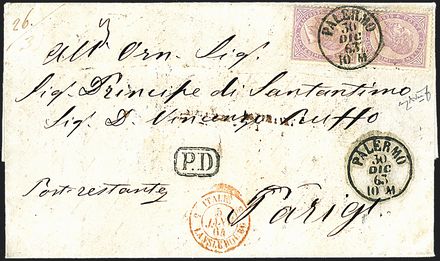 26
/3
PALERMO
30
DIC
63
10 M
All' Orn. Sig.
Sig. Principe di Santantimo
Sig. D. Vincenzo Ruffo
P.D
PALERMO
30
DIC
63
10 M
Post restante
Parigi
2 ITALIE 2
5
JANV
64
LANSLEBOURG